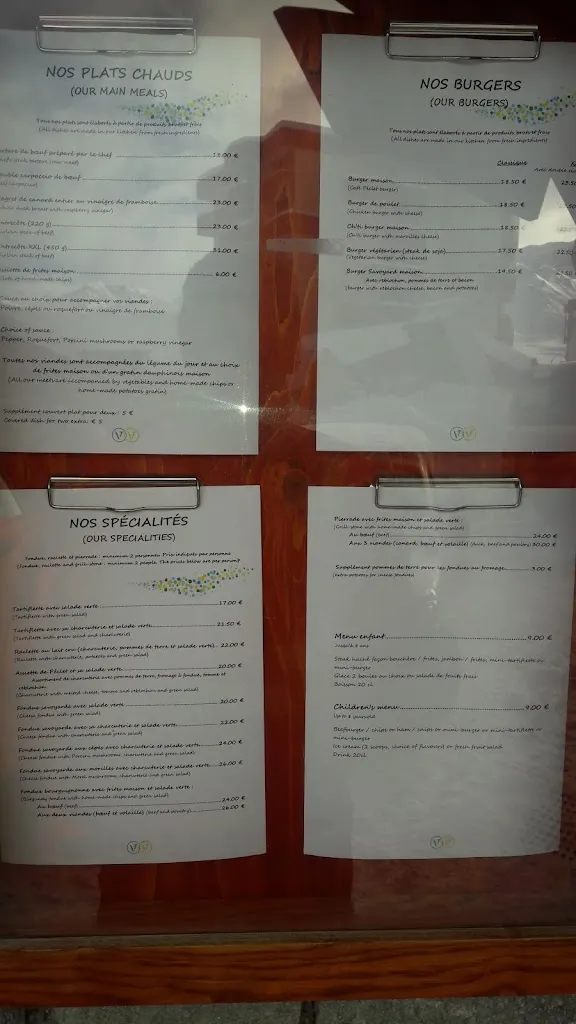 NOS PLATS CHAUDS
(OUR MAIN MEALS)
Tous nos plats sont élaborés à partir de produits bruts et frais
(All dishes are made in our kitchen from fresh ingredients)
de bœuf préparé par le chef 18.00 €
carpaccio de bœuf 17.00 €
de canard entier au vinaigre de framboise 23.00 €
(220 g) 23.00 €
XXL 31.00 €
de frites maison 6.00 €
au choix pour accompagner vos viandes :
Poivre, cèpes ou roquefort ou vinaigre de framboise
Choice of sauce :
Pepper, Roquefort, Porcini mushrooms or raspberry vinegar
Toutes nos viandes sont accompagnées du légume du jour et au choix
de frites maison ou d'un gratin dauphinois maison
(All our meats are accompanied by vegetables and home-made chips or
home-made potatoes gratin)
Supplément couvert plat pour deux : 5 €
Covered dish for two extra: € 5
NOS BURGERS
(OUR BURGERS)
Tous nos plats sont élaborés à partir de produits bruts et frais
(All dishes are made in our kitchen from fresh ingredients)
Classique
Burger maison 18.50 €
Burger de poulet 18.50 €
(Chicken burger with cheese)
Chti burger maison 18.50 €
(Chti burger with maroilles cheese)
Burger végétarien (steak de soja) 17.50 €
(Vegetarian burger with cheese)
Burger Savoyard maison 19.50 €
Avec reblochon, pommes de terre et bacon
(burger with reblochon cheese, bacon and potatoes)
NOS SPÉCIALITÉS
(OUR SPECIALITIES)
Fondue, raclette et pierrade : minimum 2 personnes. Prix indiqués par personne
(Fondue, raclette and grill-stone : minimum 2 people. The prices below are per person)
Tartiflette avec salade verte 17.00 €
(Tartiflette with green salad)
Tartiflette avec sa charcuterie et salade verte 21.50 €
(Tartiflette with green salad and charcuterie)
Raclette au lait cru (charcuterie, pommes de terre et salade verte) 22.00 €
(Raclette with charcuterie, potatoes and green salad)
Assiette de salade verte 20.00 €
Assortiment de charcuterie avec pommes de terre, fromage à fondue, tomme et
reblochon
(Charcuterie with melted cheese, tomme and reblochon and green salad)
Fondue savoyarde avec salade verte 20.00 €
(Cheese fondue with green salad)
Fondue savoyarde avec sa charcuterie et salade verte 23.00 €
(Cheese fondue with charcuterie and green salad)
Fondue savoyarde aux cèpes avec charcuterie et salade verte 24.00 €
(Cheese fondue with Porcini mushrooms, charcuterie and green salad)
Fondue savoyarde aux morilles avec charcuterie et salade verte 26.00 €
(Cheese fondue with Morel mushrooms, charcuterie and green salad)
Fondue bourguignonne avec frites maison et salade verte :
(Burgundy fondue with home made chips and green salad)
Au bœuf (beef) 24.00 €
Aux deux viandes (bœuf et volaille) (beef and poultry) 26.00 €
Pierrade avec frites maison et salade verte :
(Grill-stone with home made chips and green salad)
Au bœuf (beef) 24.00 €
Aux 3 viandes (canard, bœuf et volaille) (duck, beef and poultry) 30.00 €
Supplément pommes de terre pour les fondues au fromage 3.00 €
(Extra potatoes for cheese fondues)
Menu enfant 9.00 €
Steak haché façon bouchère / frites, jambon / frites, mini-tartiflette ou
mini-burger
Glace 2 boules au choix ou salade de fruits frais
Boisson 20 cl
Children's menu 9.00 €
Beefburger / chips or ham / chips or mini burger or mini-tartiflette or
mini-burger
Ice cream (2 scoops, choice of flavours) or fresh fruit salad
Drink 20cl